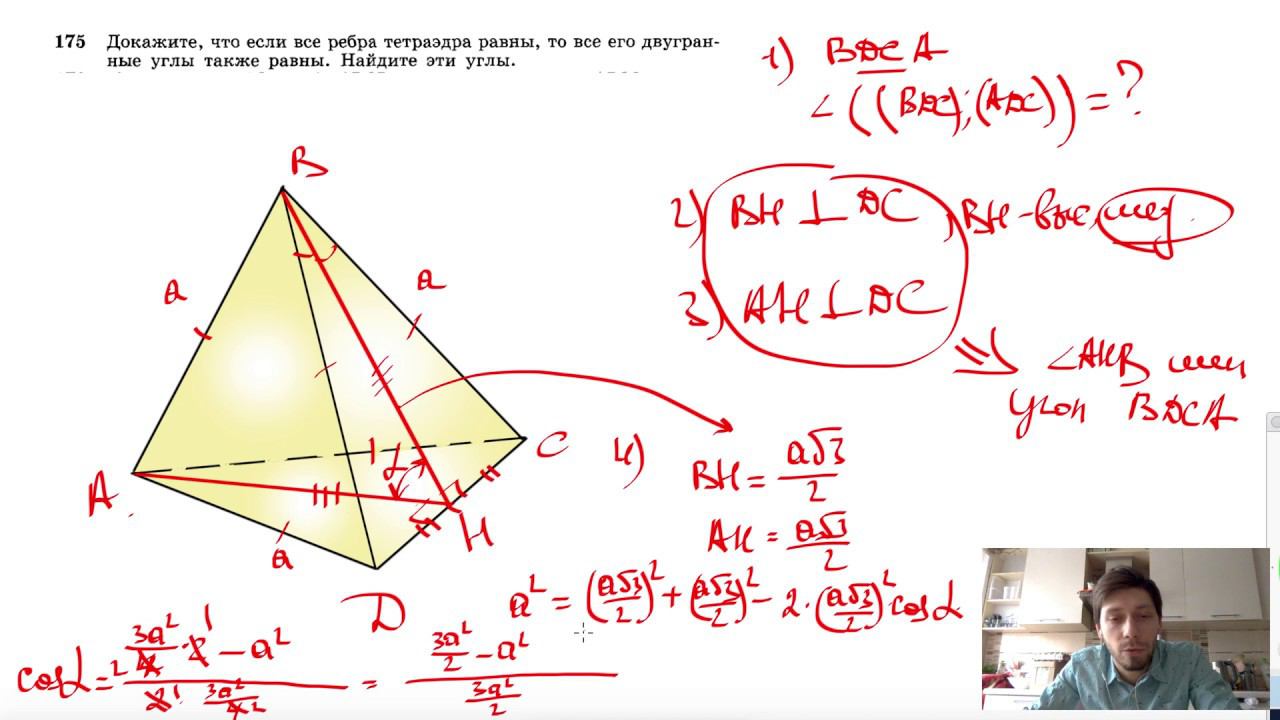 175 Докажите, что если все ребра тетраэдра равны, то все его двугран-
ные углы также равны. Найдите эти углы.
1) BDCA
∠((BDC);(ADC)) = ?
2) BH ⊥ DC, BH - выс, мед.
3) AH ⊥ DC
⇒ ∠AHB лин
угол BDCA
B
a
a
A
C
α
H
a
D
4) BH = a√3/2
AH = a√3/2
a² = (a√3/2)² + (a√3/2)² - 2·(a√3/2)² cos α
cos α = (3a²/4 · 2 - a²)/(2 · 3a²/4) = (3a²/2 - a²)/(3a²/2)